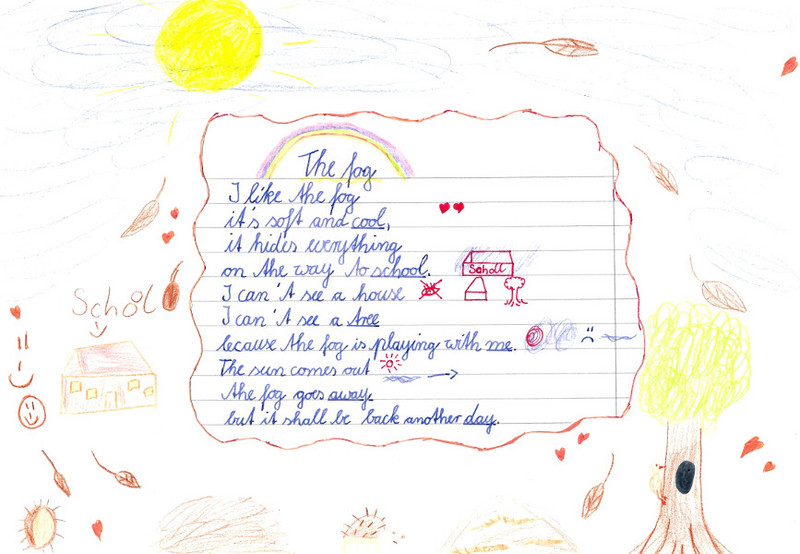 The fog
I like the fog
it's soft and cool,
it hides everything
on the way to school.
Scholl
I can't see a house
I can't see a tree
because the fog is playing with me.
The sun comes out
the fog goes away
but it shall be back another day.
Schol